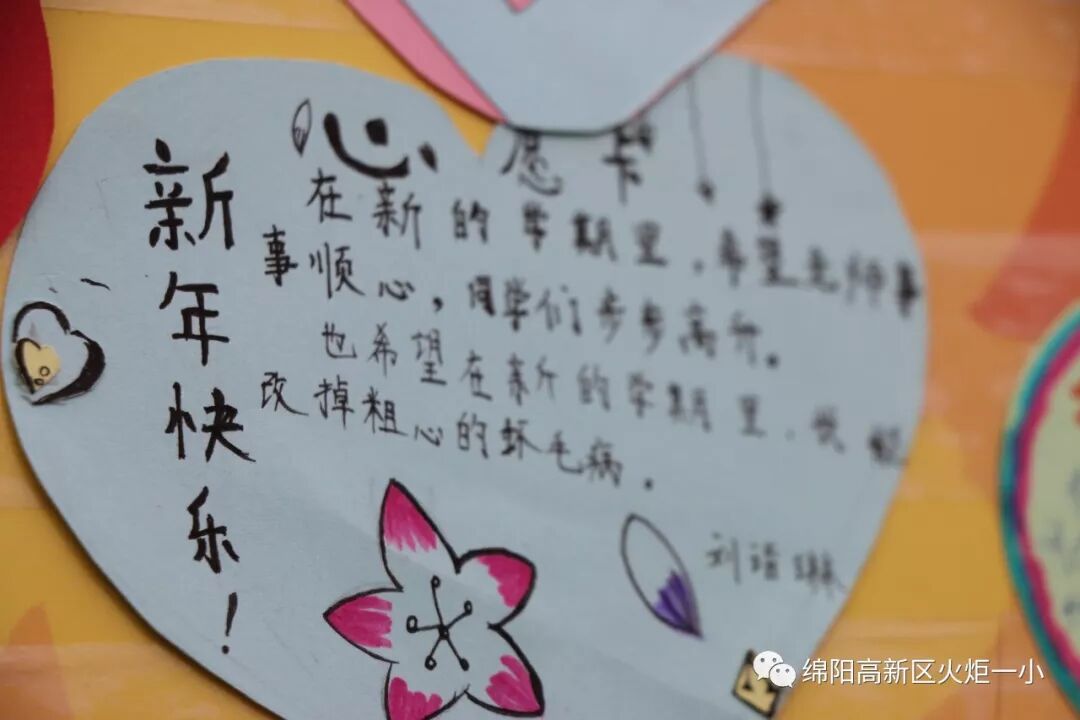 心愿卡
新年快乐！
在新的学期里，希望老师事
事顺心，同学们步步高升。
也希望在新的学期里，我能
改掉粗心的坏毛病。
刘语琳
绵阳高新区火炬一小